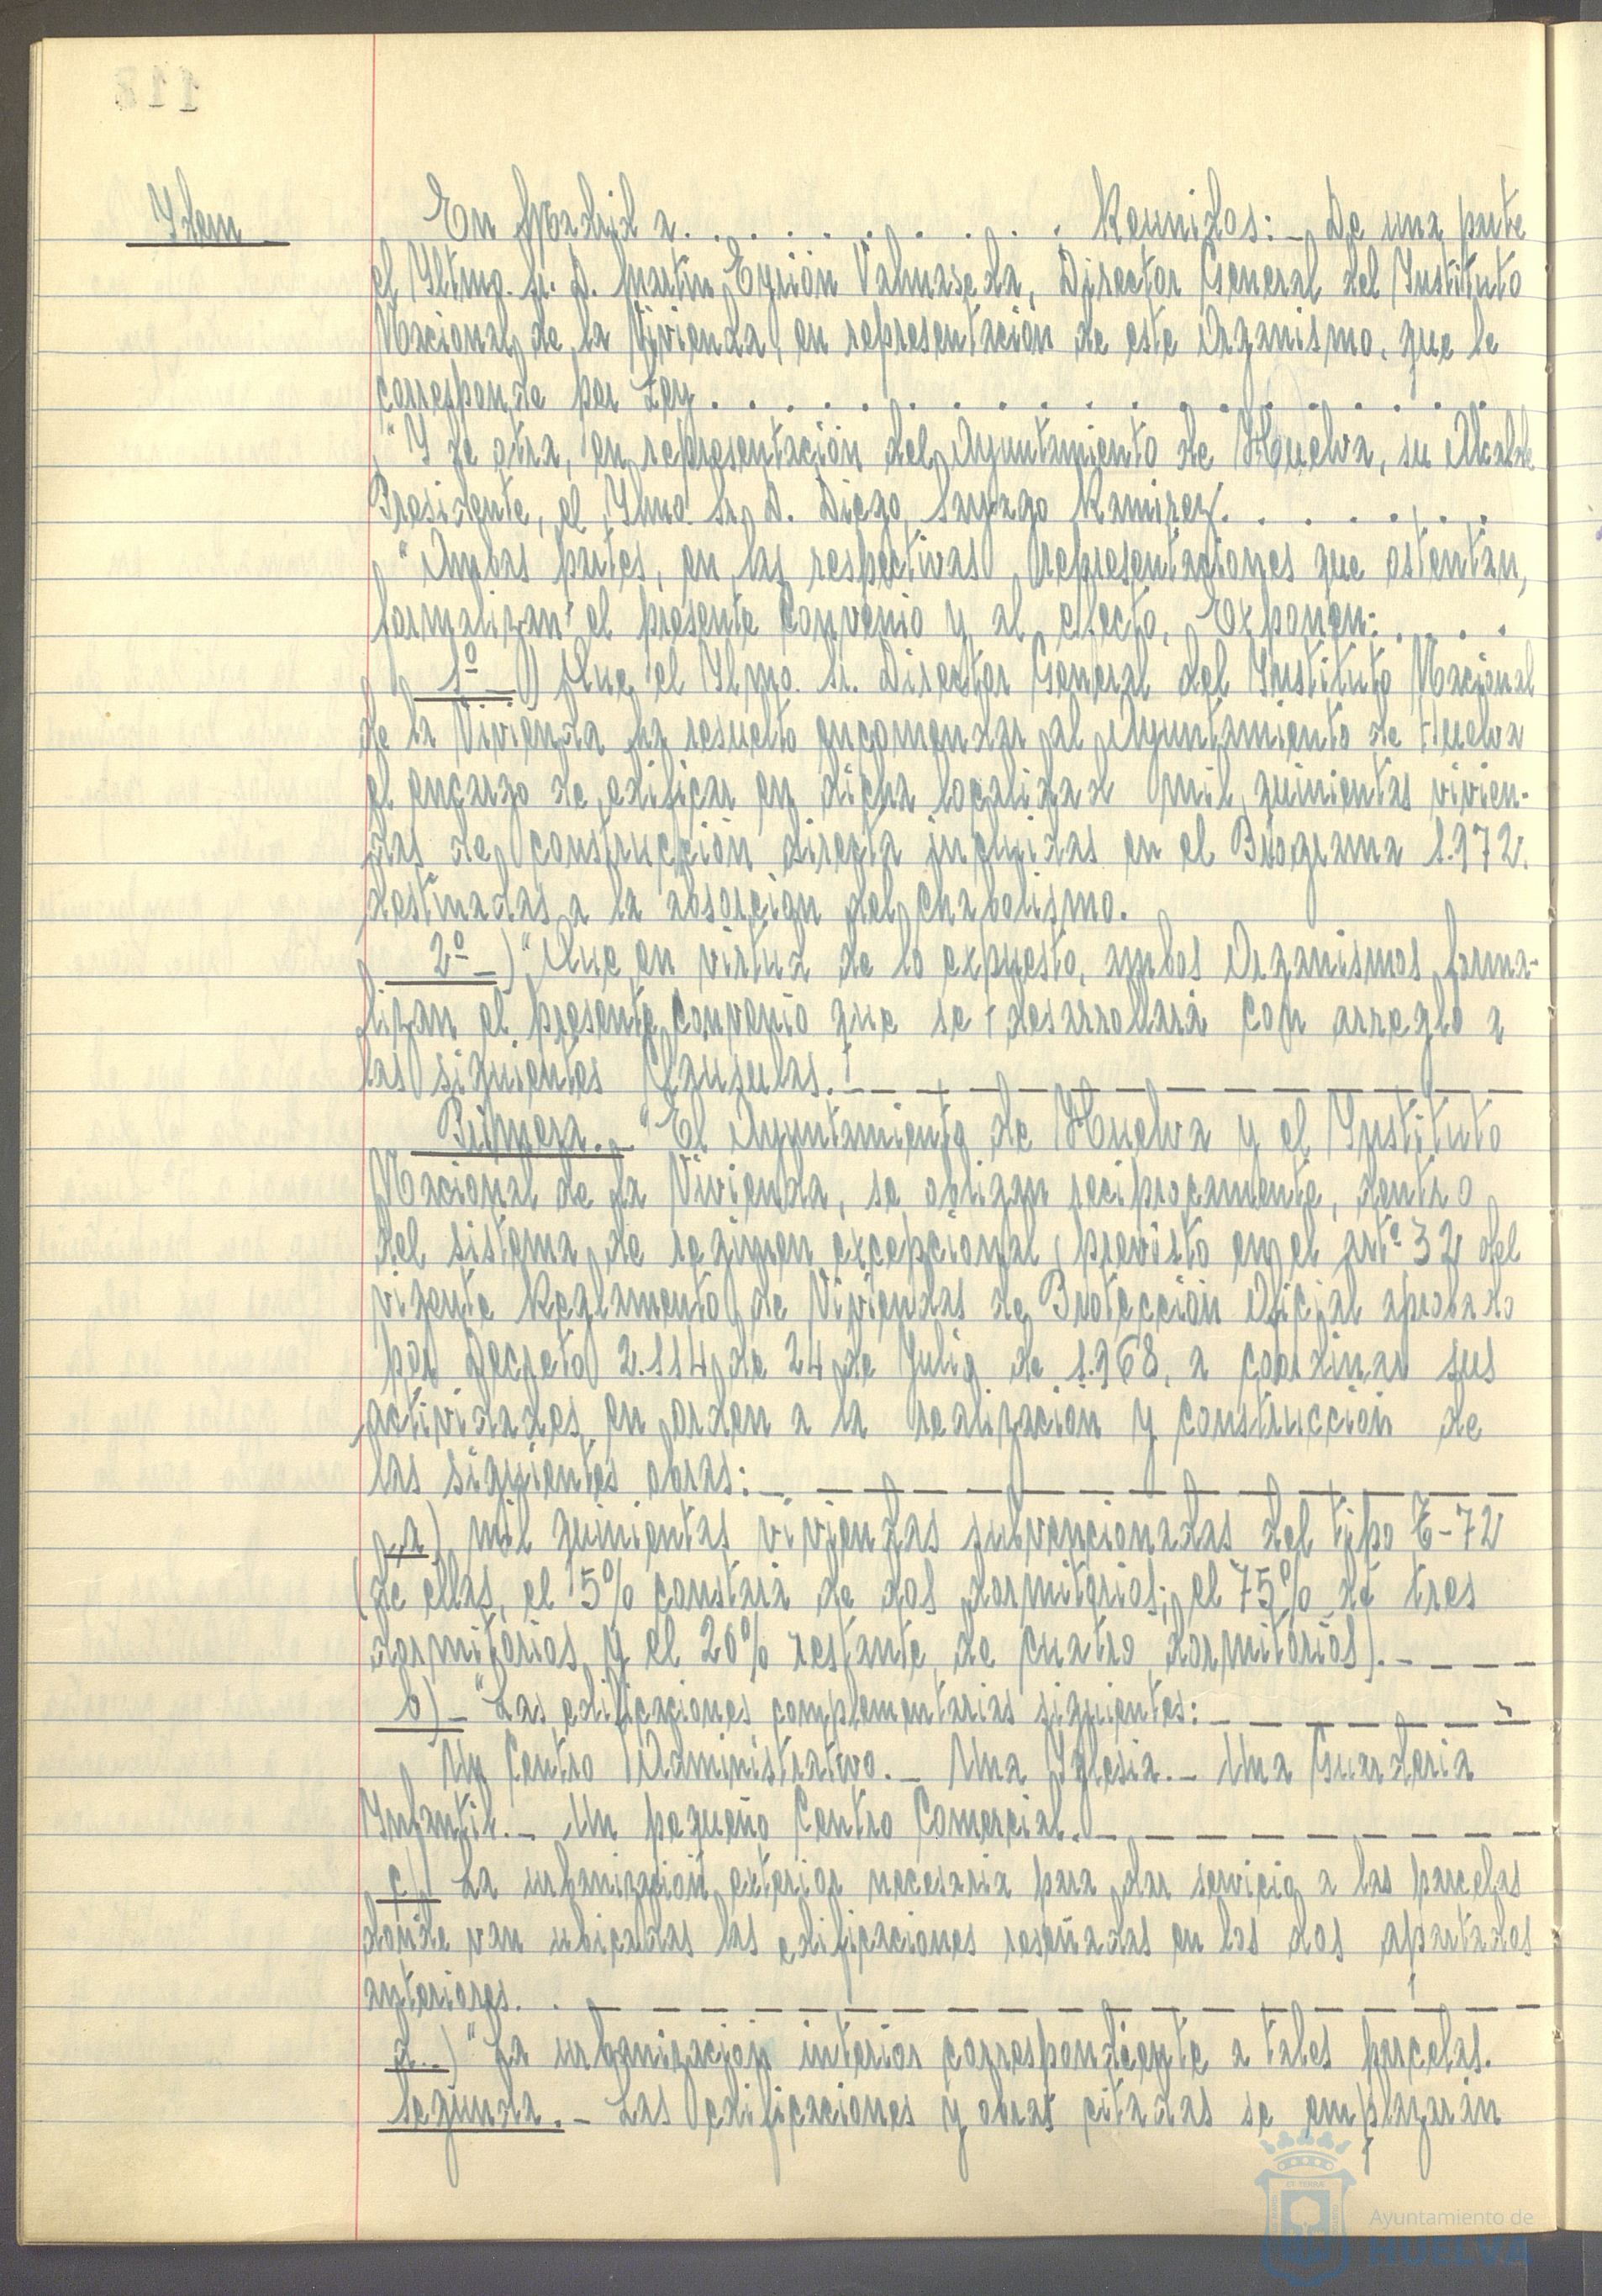 118
Idem
En Madrid a. . . . . . . . . . Reunidos: _ De una parte
el Iltmo. Sr. D. Martin Eyrión Valmaseda, Director General del Instituto
Nacional de la Vivienda, en representación de este Organismo, que le
corresponde por Ley . . . . . . . . . . . . . . . . . . .
"Y de otra, en representación del Ayuntamiento de Huelva, su Alcalde
Presidente, el Ilmo. Sr. D. Diego Sayago Ramirez. . . . . . . .
"Ambas partes, en las respectivas representaciones que ostentan,
formalizan el presente Convenio y al efecto, Exponen: . . . .
1º _ ) Que el Ilmo. Sr. Director General del Instituto Nacional
de la Vivienda ha resuelto encomendar al Ayuntamiento de Huelva
el encargo de edificar en dicha localidad mil quinientas vivien-
das de construcción directa incluidas en el Programa 1.972.
destinadas a la absorcion del chabolismo.
2º _ ) "Que en virtud de lo expuesto, ambos Organismos forma-
lizan el presente convenio que se desarrollará con arreglo a
las siguientes Clausulas. _ _ _ _ _ _ _ _ _ _ _ _
Primera. _ "El Ayuntamiento de Huelva y el Instituto
Nacional de la Vivienda, se obligan reciprocamente, dentro
del sistema de regimen excepcional previsto en el artº 32 del
vigente Reglamento de Viviendas de Protección Oficial aprobado
por Decreto 2.114 de 24 de Julio de 1.968, a coordinar sus
actividades en orden a la realización y construcción de
las siguientes obras: _ _ _ _ _ _ _ _ _ _ _ _ _
a) mil quinientas viviendas subvencionadas del tipo E-72
(de ellas, el 5% constará de dos dormitorios; el 75% de tres
dormitorios y el 20% restante de cuatro dormitorios). _ _ _ _
b) _ "Las edificaciones complementarias siguientes: _ _ _ _ _ _ _
Un Centro Administrativo. _ Una Iglesia. _ Una Guarderia
Infantil. _ Un pequeño Centro Comercial. _ _ _ _ _ _ _ _ _
c) La urbanización exterior necesaria para dar servicio a las parcelas
donde van ubicadas las edificaciones reseñadas en los dos apartados
anteriores. . _ _ _ _ _ _ _ _ _ _ _ _ _ _ _ _ _ _
d..) "La urbanización interior correspondiente a tales parcelas.
Segunda. _ Las edificaciones y obras citadas se emplazarán
Ayuntamiento de
HUELVA